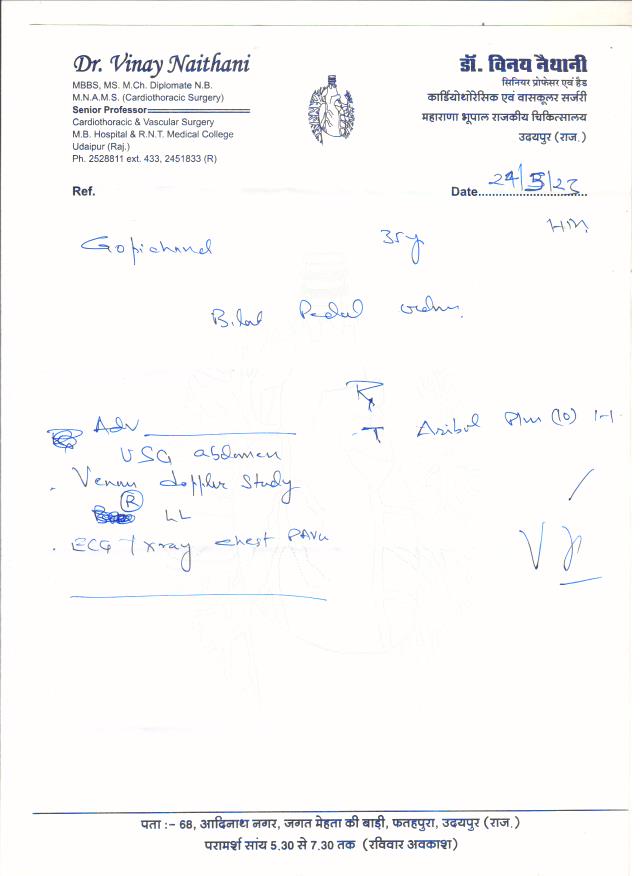 Dr. Vinay Naithani
MBBS, MS. M.Ch. Diplomate N.B.
M.N.A.M.S. (Cardiothoracic Surgery)
Senior Professor
Cardiothoracic & Vascular Surgery
M.B. Hospital & R.N.T. Medical College
Udaipur (Raj.)
Ph. 2528811 ext. 433, 2451833 (R)
डॉ. विनय नैथानी
सिनियर प्रोफेसर एवं हैड
कार्डियोथोरेसिक एवं वासकूलर सर्जरी
महाराणा भूपाल राजकीय चिकित्सालय
उदयपुर (राज.)
Ref.
Date 24/5/23
Gopichand 35y
Bilat Pedal
Rx
Adv
T (10) 1-1
USG abdomen
Venous doppler Study
(R) LL
ECG / xray chest PAVu
पता :- 68, आदिनाथ नगर, जगत मेहता की बाड़ी, फतहपुरा, उदयपुर (राज.)
परामर्श सांय 5.30 से 7.30 तक (रविवार अवकाश)